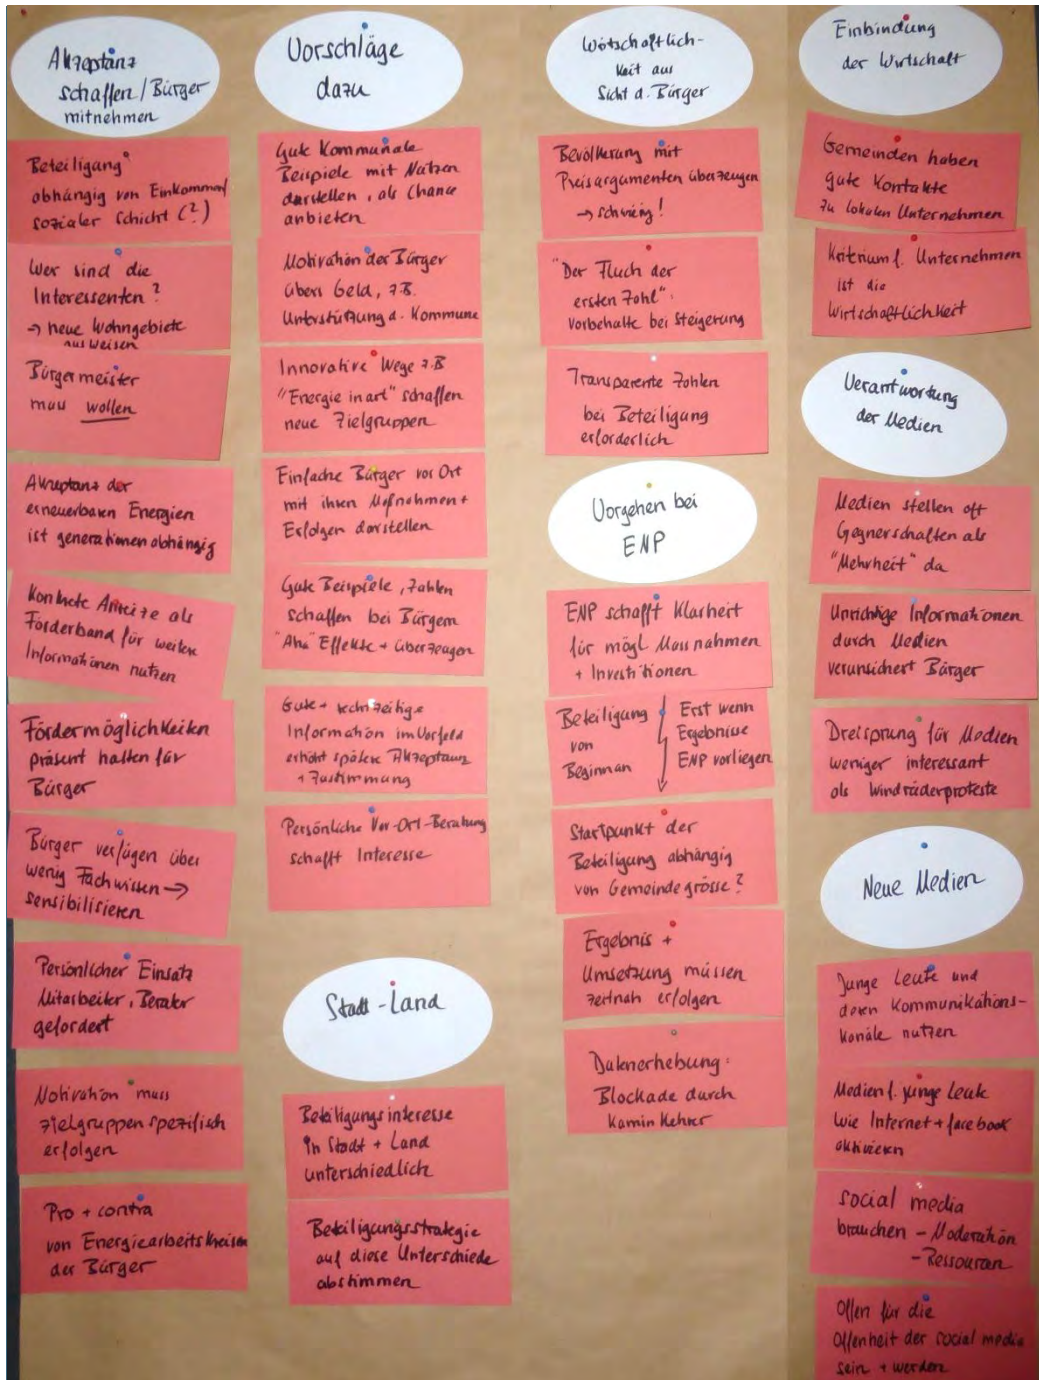 Akzeptanz
schaffen/Bürger
mitnehmen
Beteiligung
abhängig von Einkommen/
sozialer Schicht (?)
Wer sind die
Interessenten?
→ neue Wohngebiete
ausweisen
Bürgermeister
muss wollen
Akzeptanz der
erneuerbaren Energien
ist generationenabhängig
Konkrete Anreize als
Förderband für weitere
Informationen nutzen
Fördermöglichkeiten
präsent halten für
Bürger
Bürger verfügen über
wenig Fachwissen →
sensibilisieren
Persönlicher Einsatz
Mitarbeiter, Berater
gefordert
Motivation muss
zielgruppenspezifisch
erfolgen
Pro + contra
von Energiearbeitskreisen
der Bürger
Vorschläge
dazu
Gute Kommunale
Beispiele mit Nutzen
darstellen, als Chance
anbieten
Motivation der Bürger
übers Geld, z.B.
Unterstützung d. Kommune
Innovative Wege z.B
"Energie in art" schaffen
neue Zielgruppen
Einfache Bürger vor Ort
mit ihren Maßnahmen +
Erfolgen darstellen
Gute Beispiele, Zahlen
schaffen bei Bürgern
"Aha" Effekte + überzeugen
Gute + rechtzeitige
Information im Vorfeld
erhöht spätere Akzeptanz
+ Zustimmung
Persönliche Vor-Ort-Beratung
schafft Interesse
Stadt-Land
Beteiligungsinteresse
in Stadt + Land
unterschiedlich
Beteiligungsstrategie
auf diese Unterschiede
abstimmen
Wirtschaftlich-
keit aus
Sicht d. Bürger
Bevölkerung mit
Preisargumenten überzeugen
→ schwierig!
"Der Fluch der
ersten Zahl":
Vorbehalte bei Steigerung
Transparente Zahlen
bei Beteiligung
erforderlich
Vorgehen bei
ENP
ENP schafft Klarheit
für mögl. Massnahmen
+ Investitionen
Beteiligung
von
Beginn an
Erst wenn
Ergebnisse
ENP vorliegen
Startpunkt der
Beteiligung abhängig
von Gemeindegrösse?
Ergebnis +
Umsetzung müssen
zeitnah erfolgen
Datenerhebung:
Blockade durch
Kamin Kehrer
Einbindung
der Wirtschaft
Gemeinden haben
gute Kontakte
zu lokalen Unternehmen
Kriterium f. Unternehmen
ist die
Wirtschaftlichkeit
Verantwortung
der Medien
Medien stellen oft
Gegnerschaften als
"Mehrheit" da
Unrichtige Informationen
durch Medien
verunsichert Bürger
Dreisprung für Medien
weniger interessant
als Windräderproteste
Neue Medien
Junge Leute und
deren Kommunikations-
kanäle nutzen
Medien f. junge Leute
wie Internet + facebook
aktivieren
social media
brauchen - Moderation
- Ressourcen
Offen für die
Offenheit der social media
sein + werden